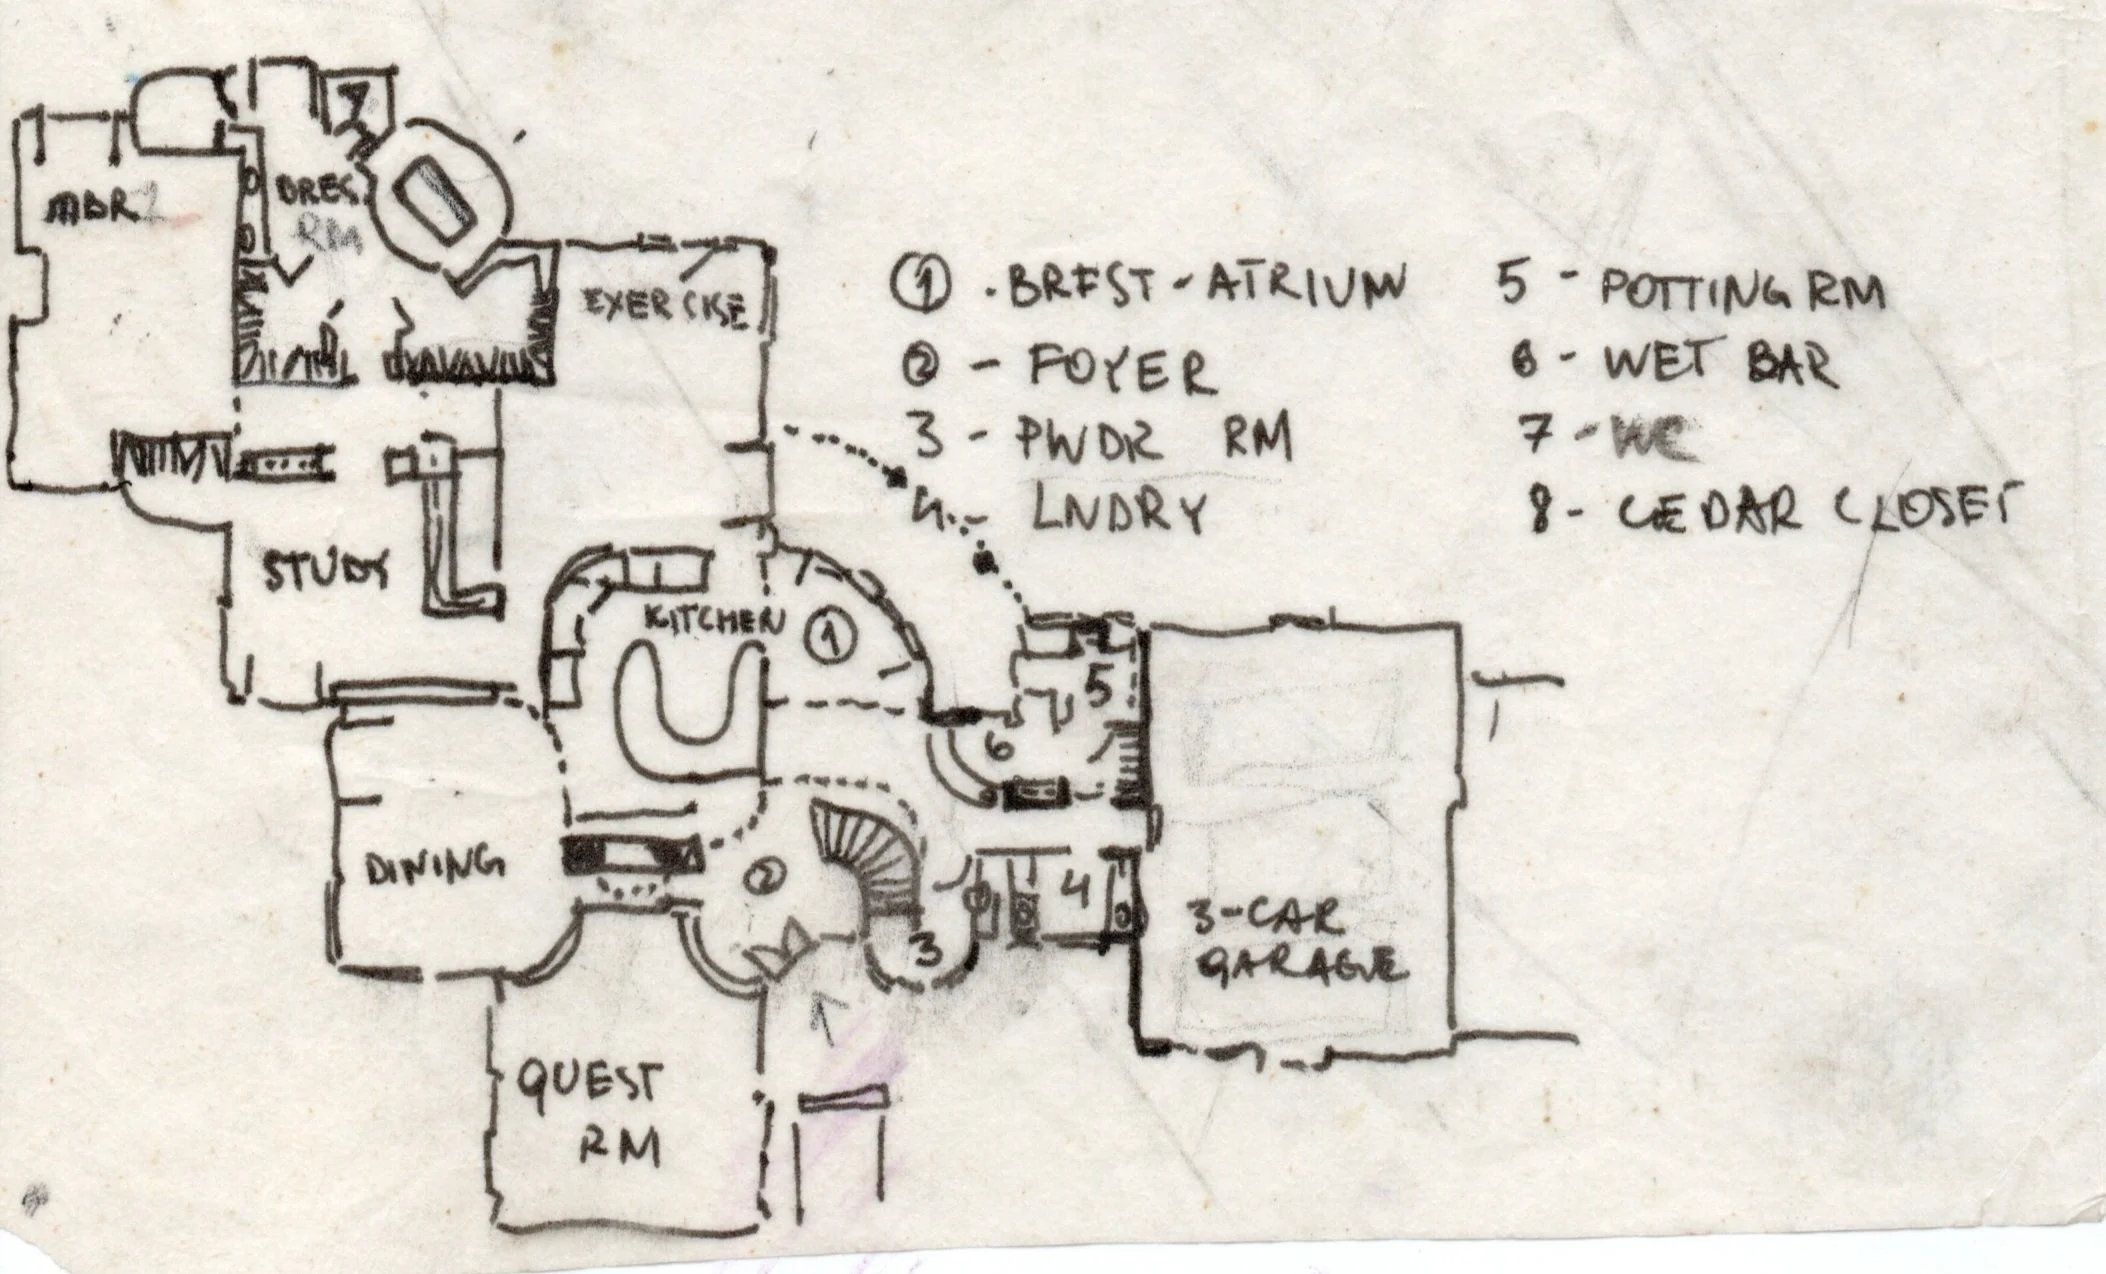 7
MBR
DRES.
RM
EXERCISE
① . BRFST - ATRIUM
② - FOYER
3 - PWDR RM
4 - LNDRY
5 - POTTING RM
6 - WET BAR
7 - WC
8 - CEDAR CLOSET
STUDY
KITCHEN
①
5
6
DINING
②
4
3
3-CAR
GARAGE
GUEST
RM